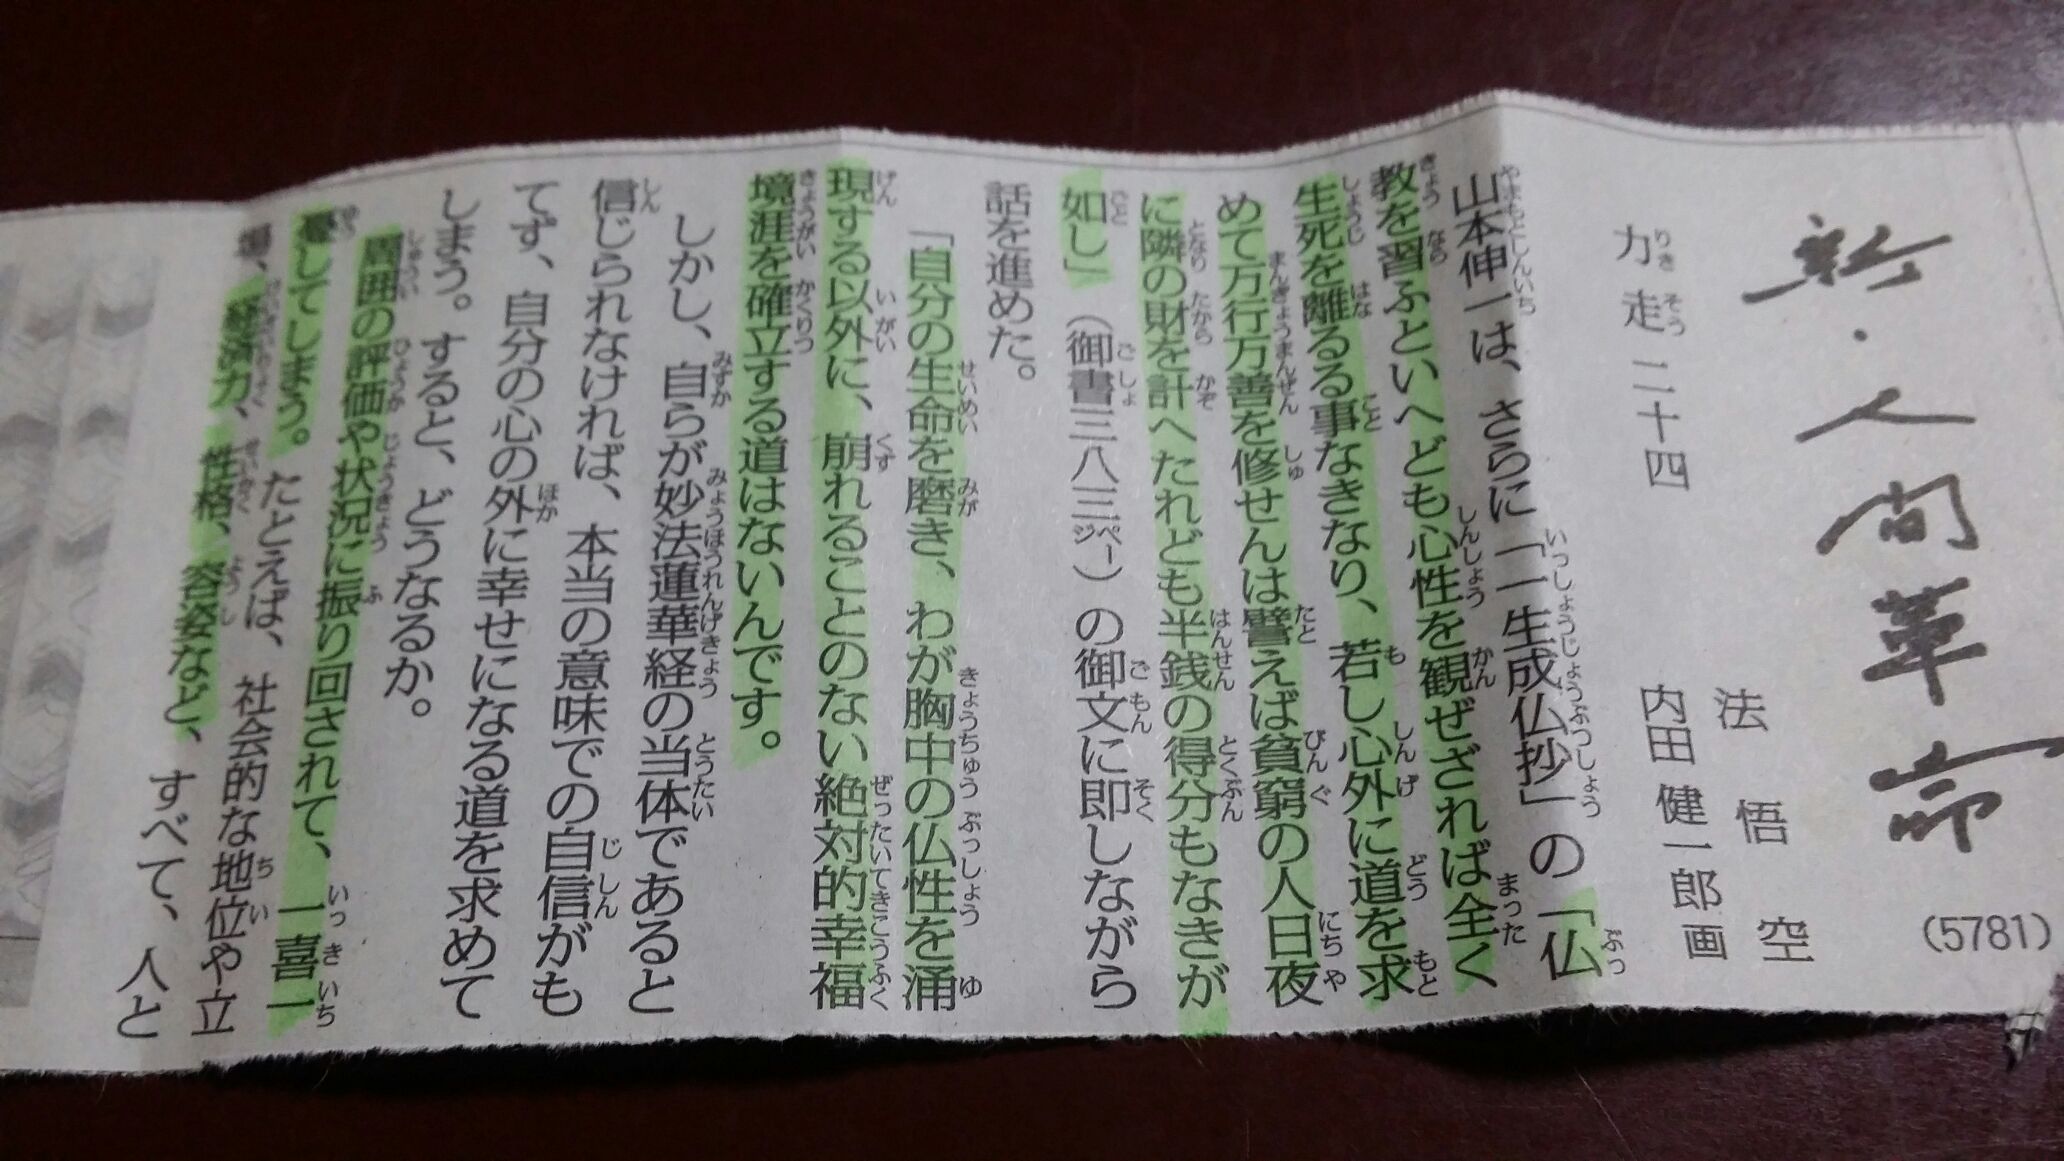 新・人間革命
(5781)
法悟空
内田健一郎 画
力走 二十四
山本伸一は、さらに「一生成仏抄」の「仏
教を習ふといへども心性を観ぜざれば全く
生死を離るる事なきなり、若し心外に道を求
めて万行万善を修せんは譬えば貧窮の人日夜
に隣の財を計へたれども半銭の得分もなきが
如し」（御書三八三㌻）の御文に即しながら
話を進めた。
「自分の生命を磨き、わが胸中の仏性を涌
現する以外に、崩れることのない絶対的幸福
境涯を確立する道はないんです。
しかし、自らが妙法蓮華経の当体であると
信じられなければ、本当の意味での自信がも
てず、自分の心の外に幸せになる道を求めて
しまう。すると、どうなるか。
周囲の評価や状況に振り回されて、一喜一
憂してしまう。たとえば、社会的な地位や立
場、経済力、性格、容姿など、すべて、人と